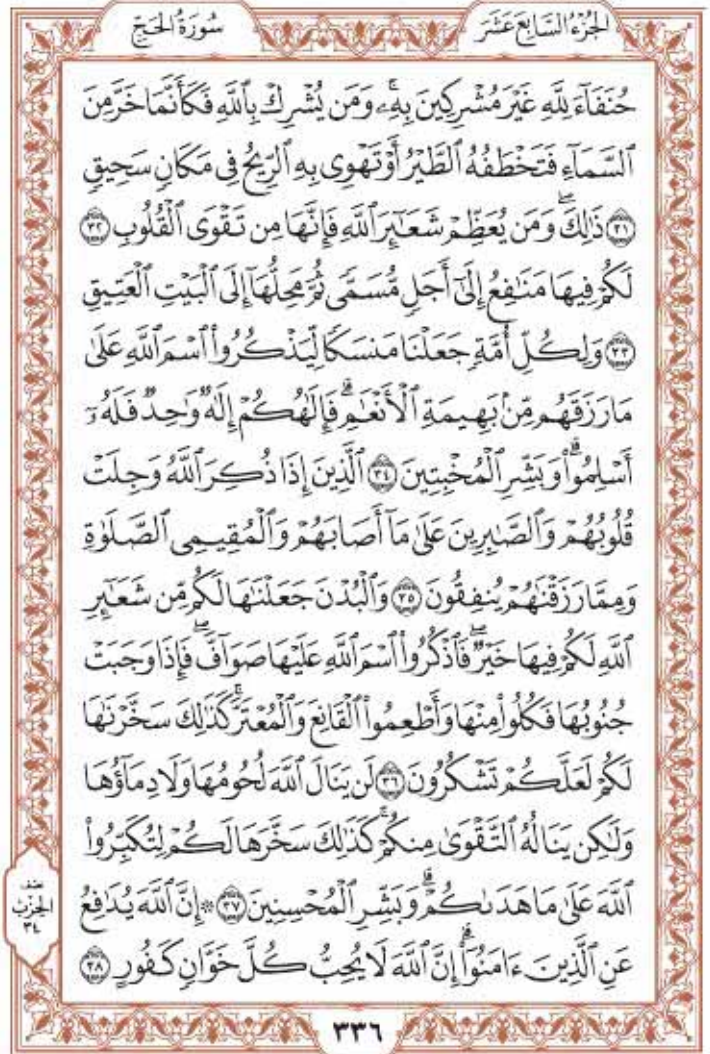 سُورَةُ الحَجِّ
الجُزْءُ السَّابِعَ عَشَرَ
حُنَفَآءَ لِلَّهِ غَيْرَ مُشْرِكِينَ بِهِۦۚ وَمَن يُشْرِكْ بِٱللَّهِ فَكَأَنَّمَا خَرَّ مِنَ
ٱلسَّمَآءِ فَتَخْطَفُهُ ٱلطَّيْرُ أَوْ تَهْوِى بِهِ ٱلرِّيحُ فِى مَكَانٍ سَحِيقٍ
٣١ ذَٰلِكَۖ وَمَن يُعَظِّمْ شَعَـٰٓئِرَ ٱللَّهِ فَإِنَّهَا مِن تَقْوَى ٱلْقُلُوبِ ٣٢
لَكُمْ فِيهَا مَنَـٰفِعُ إِلَىٰٓ أَجَلٍ مُّسَمًّى ثُمَّ مَحِلُّهَآ إِلَى ٱلْبَيْتِ ٱلْعَتِيقِ
٣٣ وَلِكُلِّ أُمَّةٍ جَعَلْنَا مَنسَكًا لِّيَذْكُرُوا۟ ٱسْمَ ٱللَّهِ عَلَىٰ
مَا رَزَقَهُم مِّنۢ بَهِيمَةِ ٱلْأَنْعَـٰمِۗ فَإِلَـٰهُكُمْ إِلَـٰهٌ وَٰحِدٌ فَلَهُۥٓ
أَسْلِمُوا۟ۗ وَبَشِّرِ ٱلْمُخْبِتِينَ ٣٤ ٱلَّذِينَ إِذَا ذُكِرَ ٱللَّهُ وَجِلَتْ
قُلُوبُهُمْ وَٱلصَّـٰبِرِينَ عَلَىٰ مَآ أَصَابَهُمْ وَٱلْمُقِيمِى ٱلصَّلَوٰةِ
وَمِمَّا رَزَقْنَـٰهُمْ يُنفِقُونَ ٣٥ وَٱلْبُدْنَ جَعَلْنَـٰهَا لَكُم مِّن شَعَـٰٓئِرِ
ٱللَّهِ لَكُمْ فِيهَا خَيْرٌۖ فَٱذْكُرُوا۟ ٱسْمَ ٱللَّهِ عَلَيْهَا صَوَآفَّۖ فَإِذَا وَجَبَتْ
جُنُوبُهَا فَكُلُوا۟ مِنْهَا وَأَطْعِمُوا۟ ٱلْقَانِعَ وَٱلْمُعْتَرَّۚ كَذَٰلِكَ سَخَّرْنَـٰهَا
لَكُمْ لَعَلَّكُمْ تَشْكُرُونَ ٣٦ لَن يَنَالَ ٱللَّهَ لُحُومُهَا وَلَا دِمَآؤُهَا
وَلَـٰكِن يَنَالُهُ ٱلتَّقْوَىٰ مِنكُمْۚ كَذَٰلِكَ سَخَّرَهَا لَكُمْ لِتُكَبِّرُوا۟
ٱللَّهَ عَلَىٰ مَا هَدَىٰكُمْۗ وَبَشِّرِ ٱلْمُحْسِنِينَ ٣٧ ۞ إِنَّ ٱللَّهَ يُدَٰفِعُ
عَنِ ٱلَّذِينَ ءَامَنُوٓا۟ۗ إِنَّ ٱللَّهَ لَا يُحِبُّ كُلَّ خَوَّانٍ كَفُورٍ ٣٨
نصف
الحِزْب
٣٤
٣٣٦